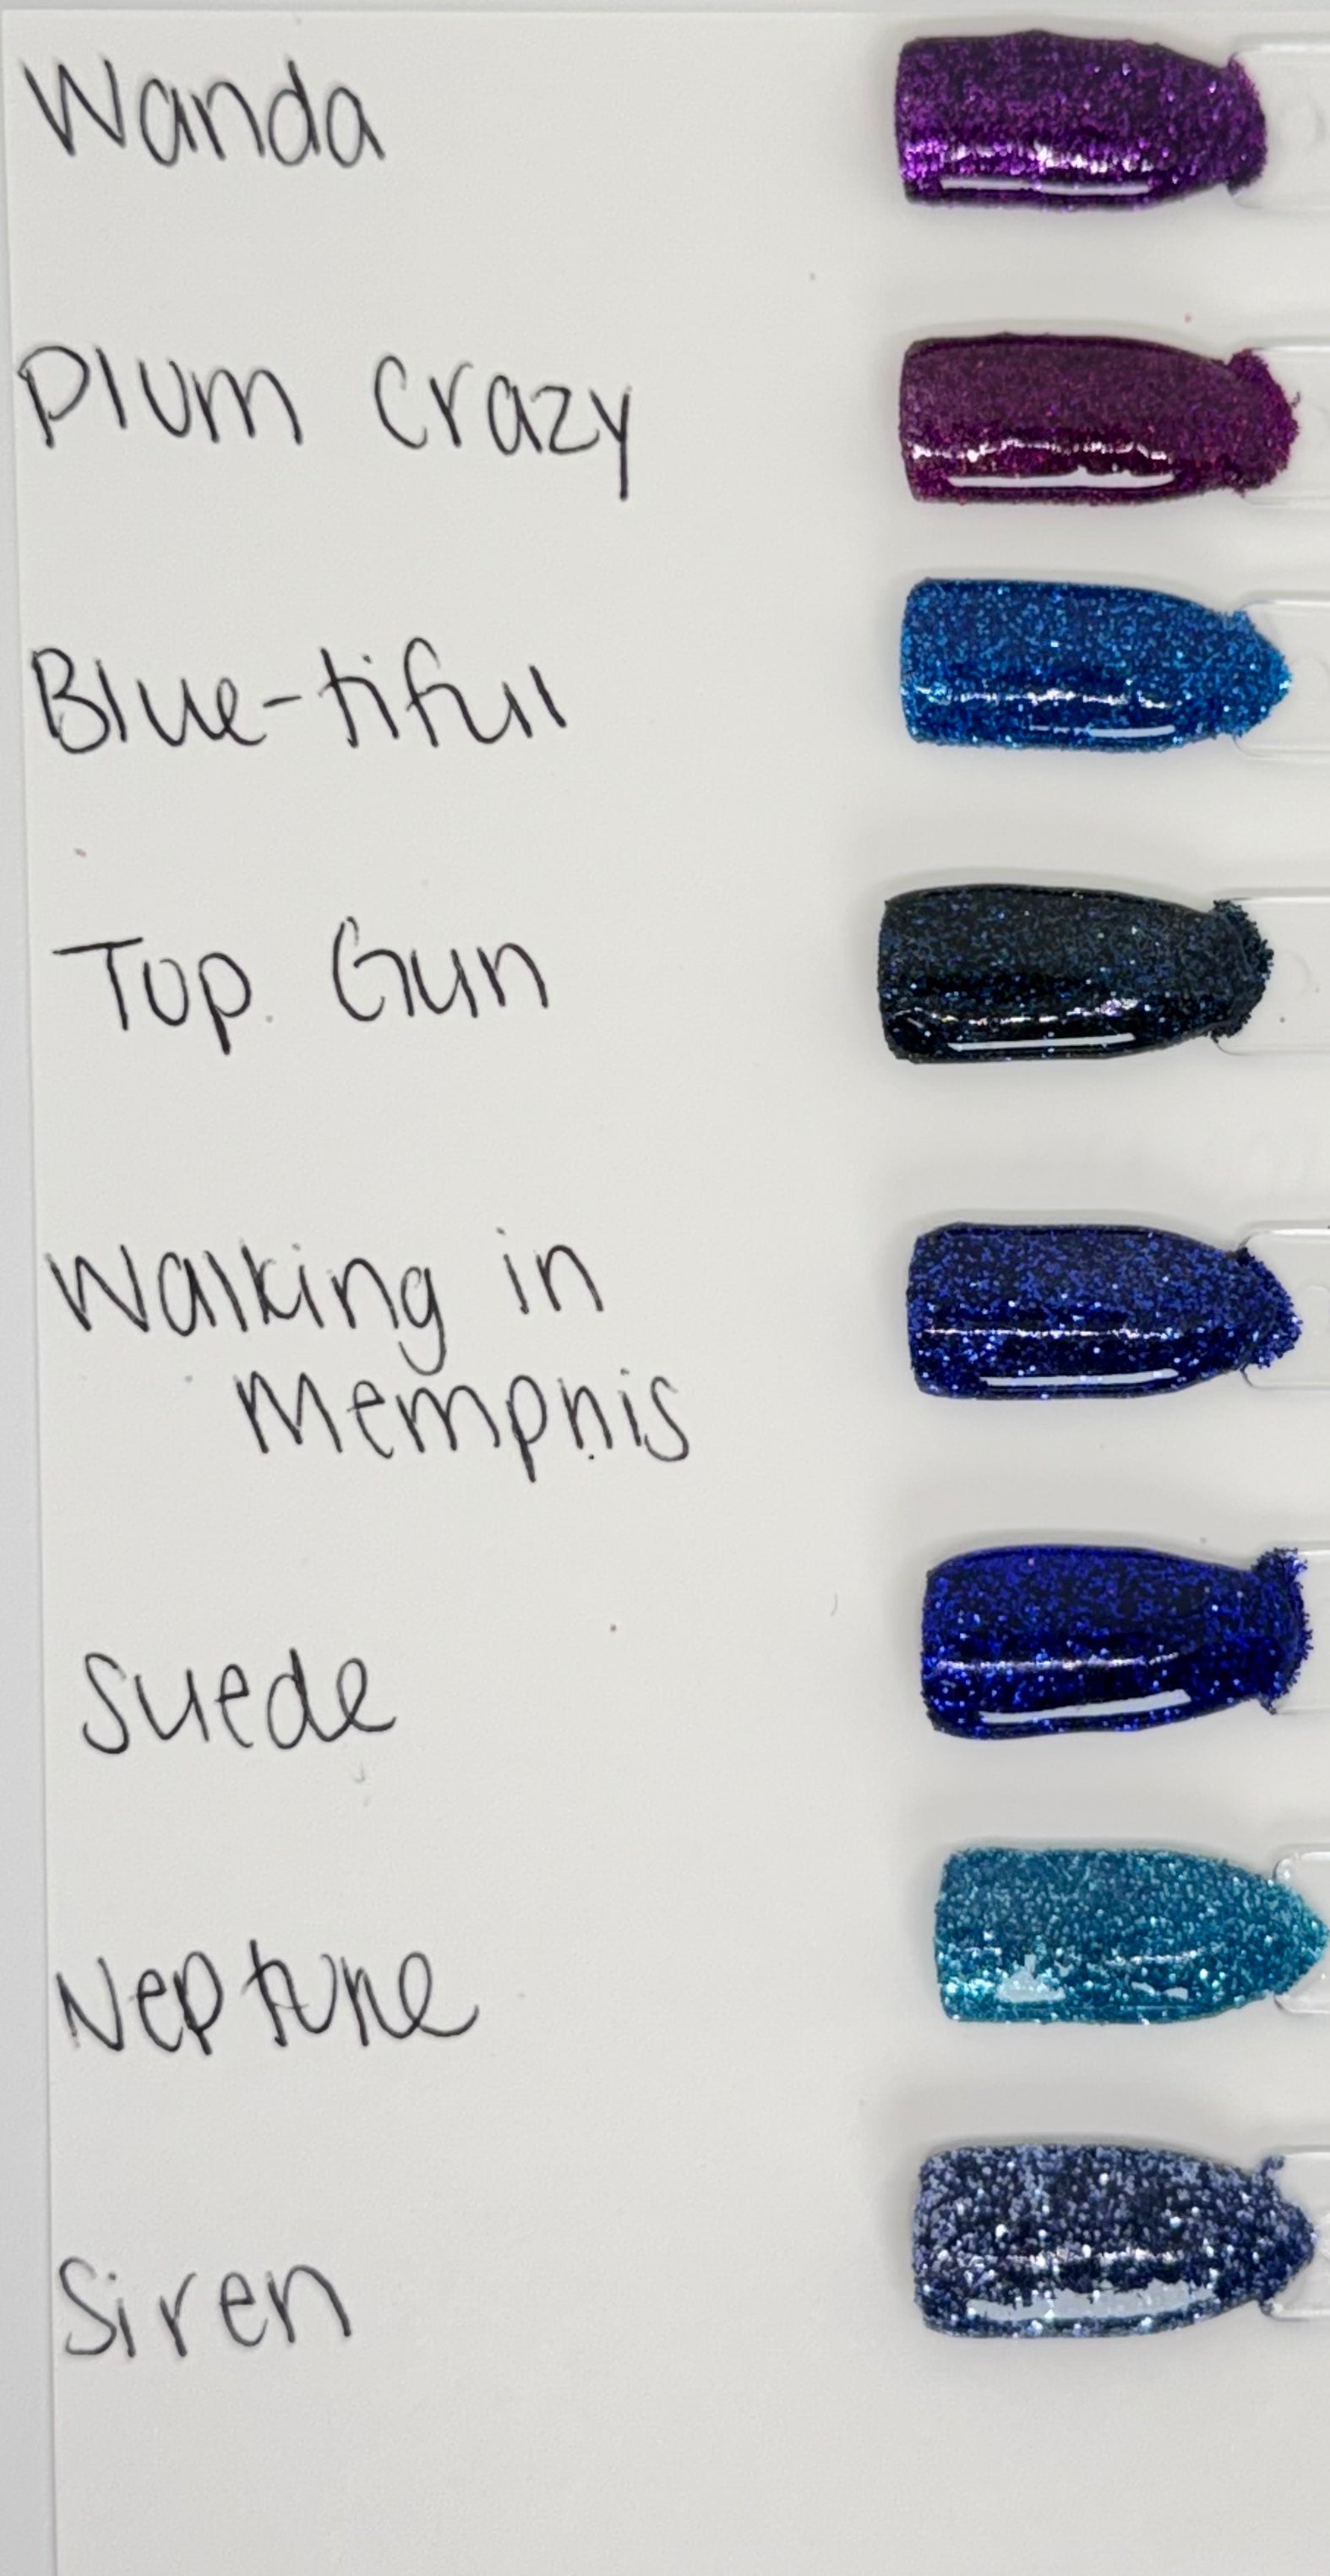 Wanda
Plum crazy
Blue-tifull
Top Gun
Walking in
Memphis
Suede
Neptune
Siren